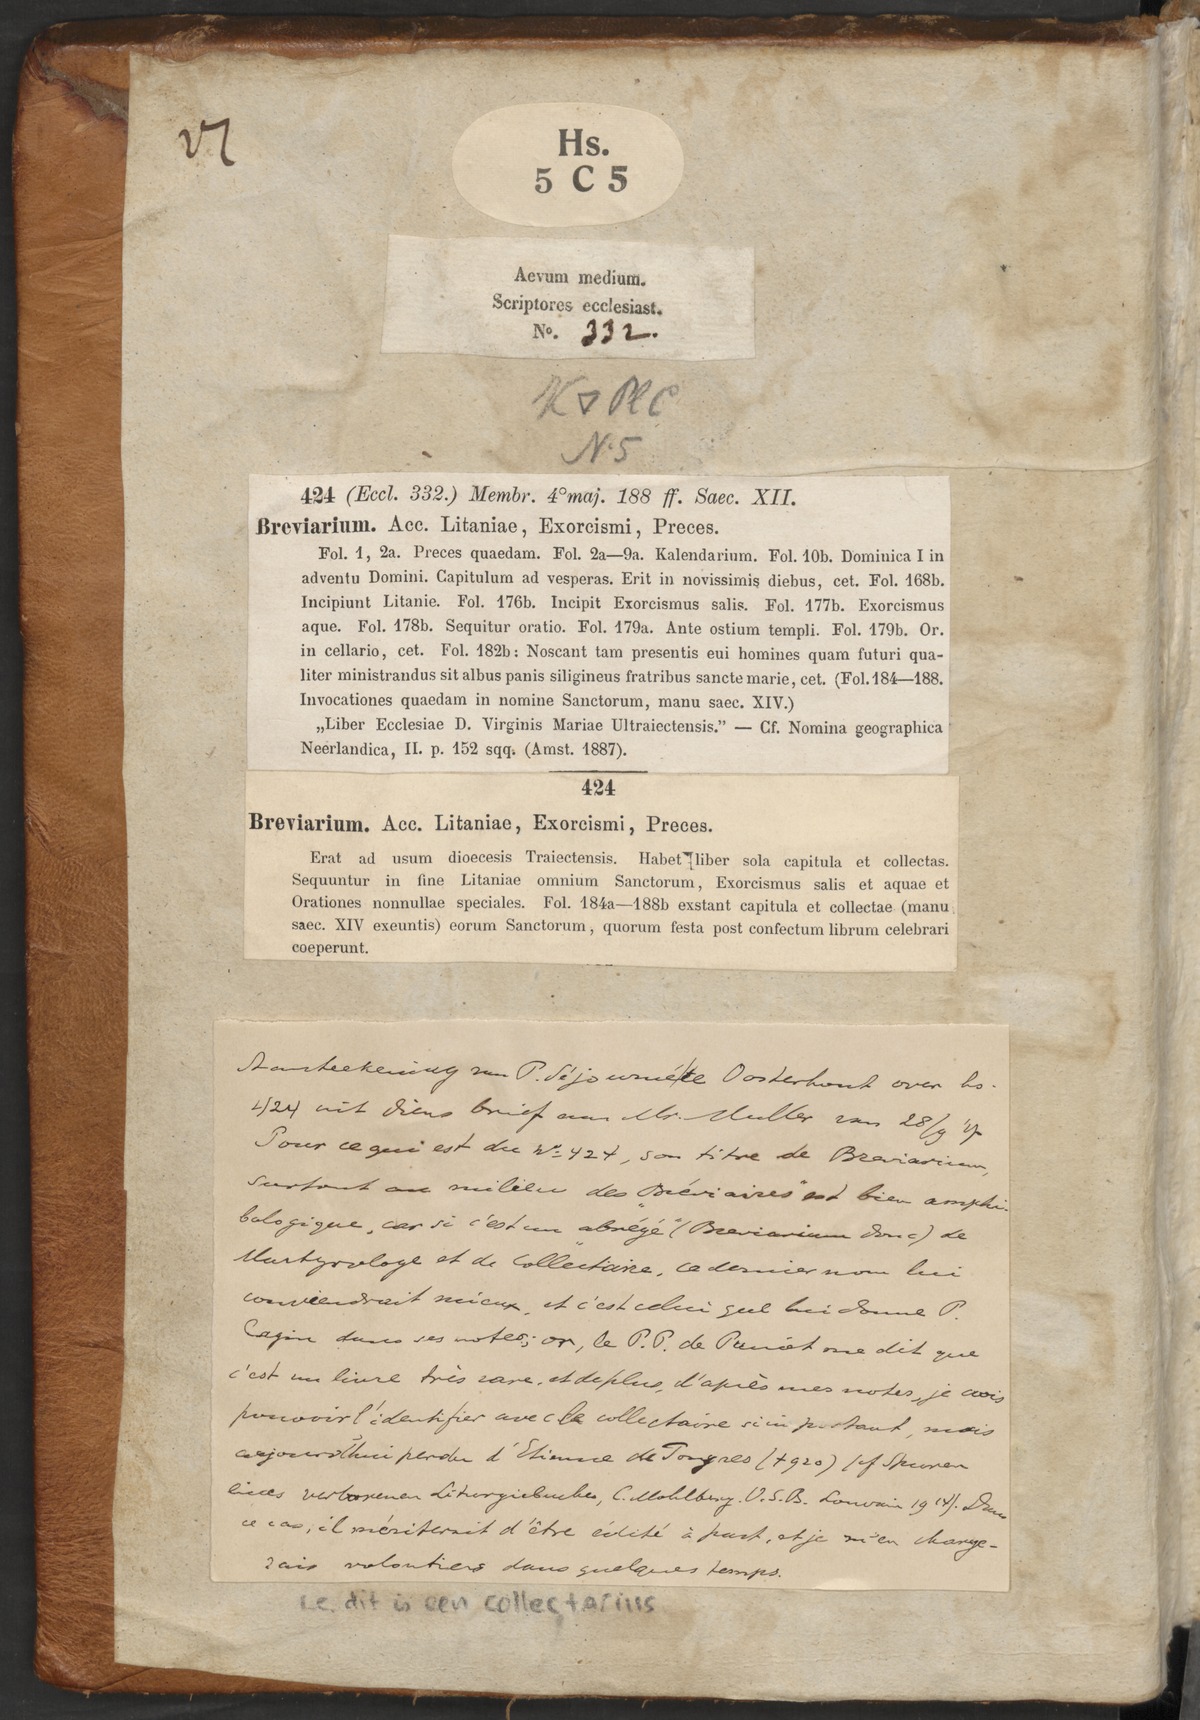 Hs.
5 C 5
Aevum medium.
Scriptores ecclesiast.
No. 332.
N. 5
424 (Eccl. 332.) Membr. 4° maj. 188 ff. Saec. XII.
Breviarium. Acc. Litaniae, Exorcismi, Preces.
Fol. 1, 2a. Preces quaedam. Fol. 2a—9a. Kalendarium. Fol. 10b. Dominica I in
adventu Domini. Capitulum ad vesperas. Erit in novissimis diebus, cet. Fol. 168b.
Incipiunt Litanie. Fol. 176b. Incipit Exorcismus salis. Fol. 177b. Exorcismus
aque. Fol. 178b. Sequitur oratio. Fol. 179a. Ante ostium templi. Fol. 179b. Or.
in cellario, cet. Fol. 182b: Noscant tam presentis eui homines quam futuri qua-
liter ministrandus sit albus panis siligineus fratribus sancte marie, cet. (Fol. 184—188.
Invocationes quaedam in nomine Sanctorum, manu saec. XIV.)
„Liber Ecclesiae D. Virginis Mariae Ultraiectensis.” — Cf. Nomina geographica
Neerlandica, II. p. 152 sqq. (Amst. 1887).
424
Breviarium. Acc. Litaniae, Exorcismi, Preces.
Erat ad usum dioecesis Traiectensis. Habet liber sola capitula et collectas.
Sequuntur in fine Litaniae omnium Sanctorum, Exorcismus salis et aquae et
Orationes nonnullae speciales. Fol. 184a—188b exstant capitula et collectae (manu
saec. XIV exeuntis) eorum Sanctorum, quorum festa post confectum librum celebrari
coeperunt.
Aanteekening van P. Séjourné te Oosterhout over hs.
424 uit diens brief aan Mr. Muller van 28/9
Pour ce qui est du No 424, son titre de Breviarium,
surtout au milieu des "Bréviaires" est bien amphi-
bologique, car si c'est un "abrégé" (Breviarium donc) de
Martyrologe et de Collectaire, ce dernier nom lui
conviendrait mieux, et c'est celui que lui donne P.
Cagin dans ses notes; or, le P.P. de Puniet me dit que
c'est un livre très rare, et de plus, d'après mes notes, je crois
pouvoir l'identifier avec le collectaire si important, mais
aujourd'hui perdu d'Etienne de Tongres († 920) (cf Spuren
eines verlorenen Liturgiebuches, C. Mohlberg. O.S.B. Louvain 19 14). Dans
ce cas, il mériterait d'être édité à part, et je m'en charge-
rais volontiers dans quelques temps.
i.e. dit is een collectarius